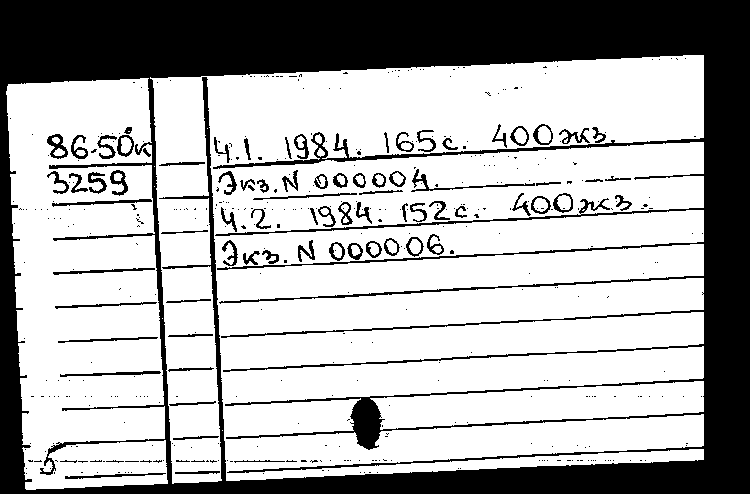 86-50к
3259
Ч.1. 1984. 165 с. 400 экз.
Экз. N 000004.
Ч.2. 1984. 152 с. 400 экз.
Экз. N 000006.